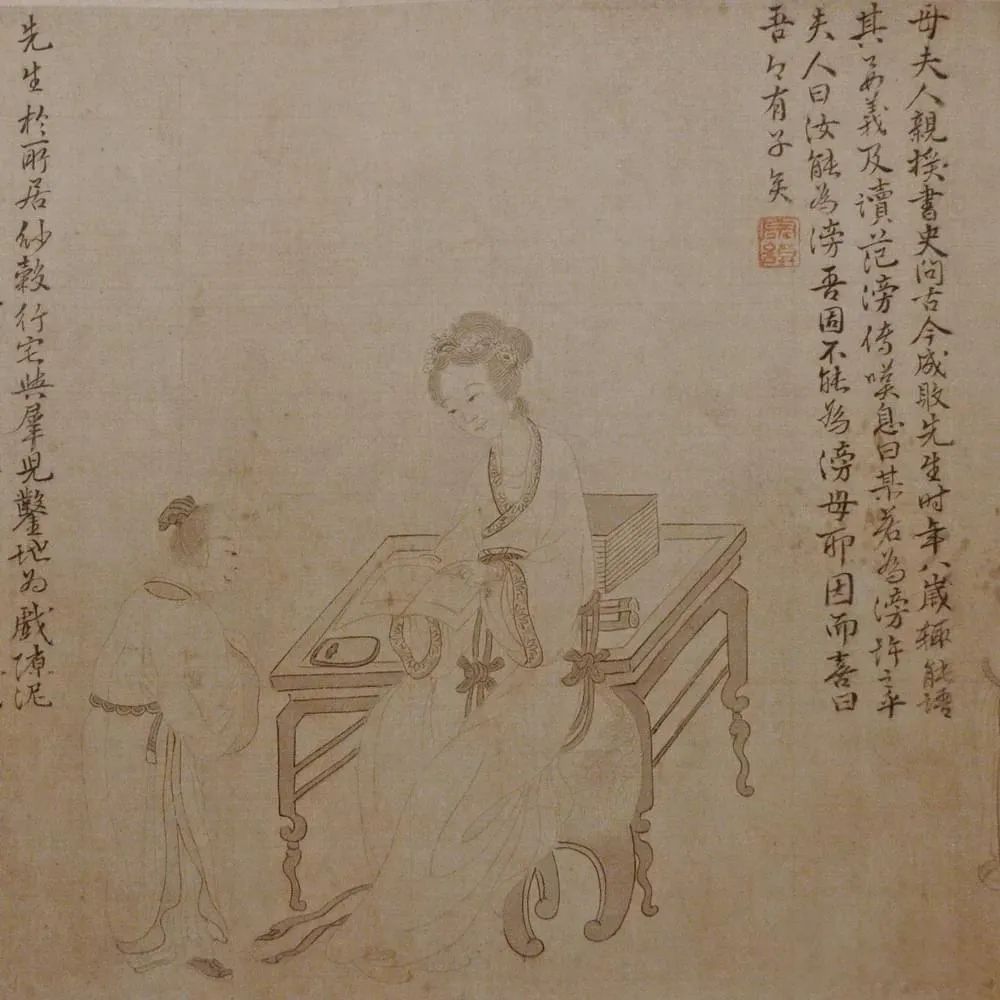 母夫人親授書史問古今成敗先生时年八歲輒能語
其要義及讀范滂傳嘆息曰某若為滂許之乎
夫人曰汝能為滂吾固不能為滂母耶因而喜曰
吾々有子矣
先生於所居紗縠行宅與犀兒鑿地为戲陳泥